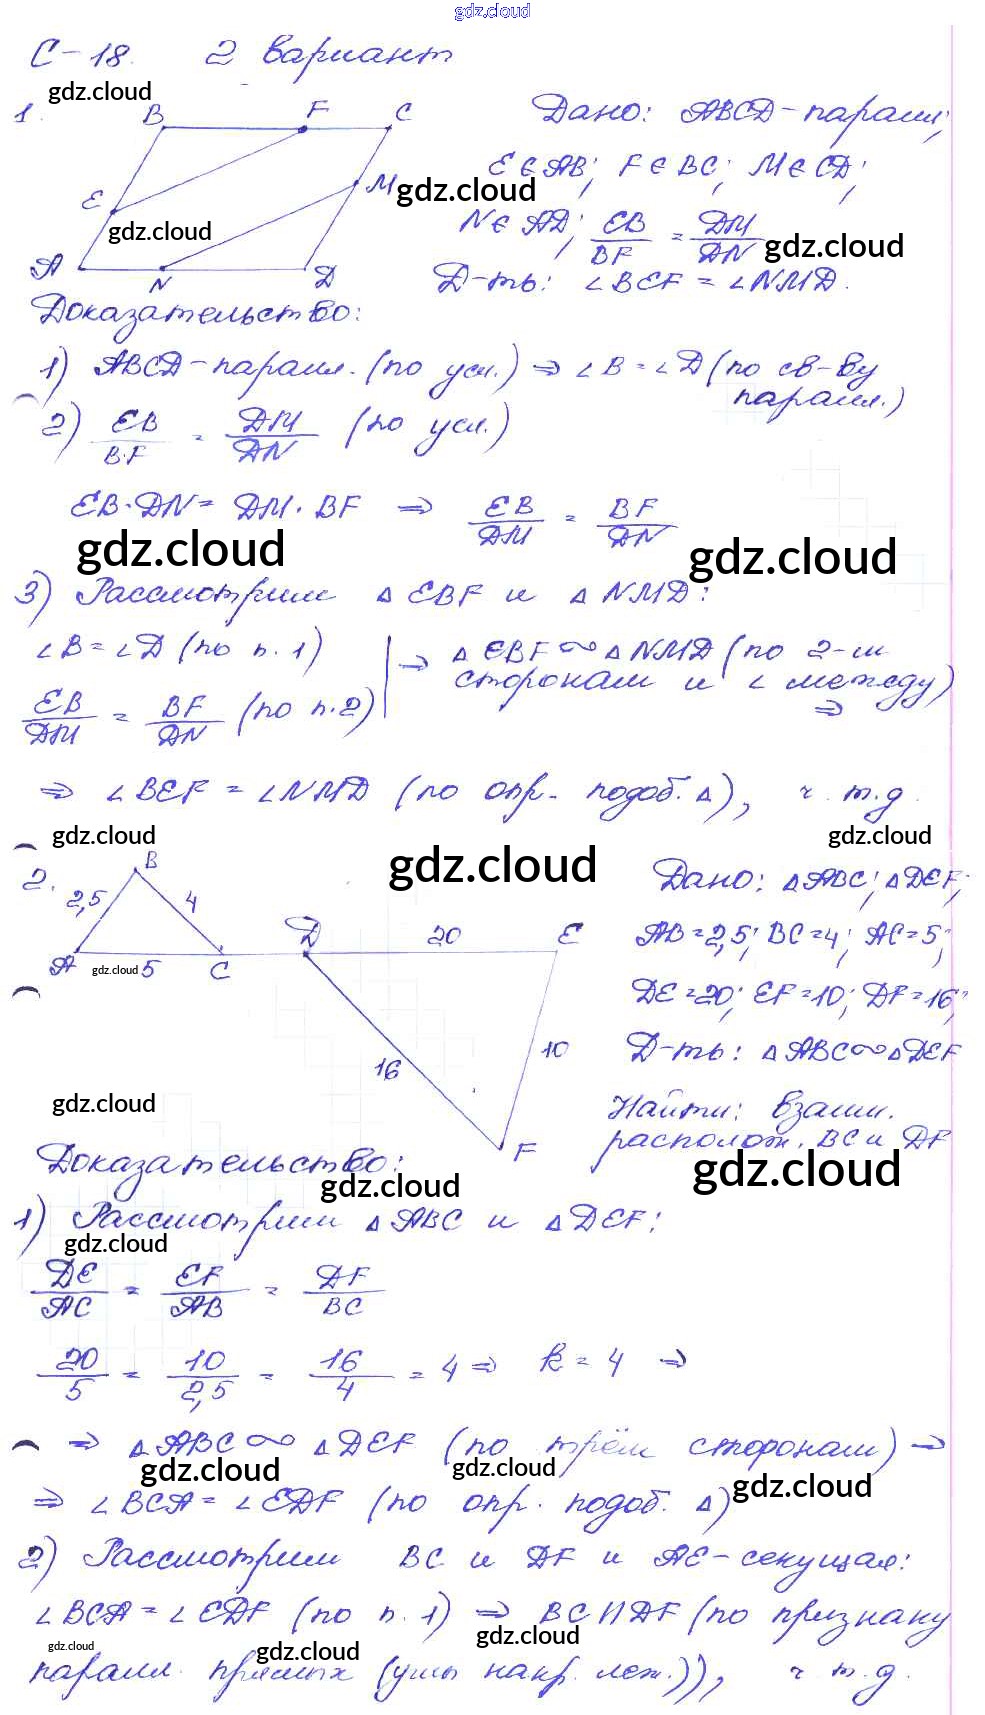 gdz.cloud
С-18. 2 вариант
gdz.cloud
1. B F C Дано: ABCD-паралл;
E∈AB; F∈BC; M∈CD;
E M gdz.cloud
gdz.cloud N∈AD; EB/BF = DM/DN gdz.cloud
A N D Д-ть: ∠BEF = ∠NMD.
Доказательство:
1) ABCD-паралл. (по усл.) ⇒ ∠B=∠D (по св-ву
паралл.)
2) EB/BF = DM/DN (по усл.)
EB·DN = DM·BF ⇒ EB/DM = BF/DN
gdz.cloud gdz.cloud
3) Рассмотрим △EBF и △NMD:
∠B=∠D (по п.1) | ⇒ △EBF∞△NMD (по 2-м
сторонам и ∠ между)
EB/DM = BF/DN (по п.2) ⇒
⇒ ∠BEF = ∠NMD (по опр. подоб. △), ч.т.д.
gdz.cloud gdz.cloud gdz.cloud
2. B Дано: △ABC; △DEF;
2,5 4
D 20 E AB=2,5; BC=4; AC=5;
A gdz.cloud 5 C
DE=20; EF=10; DF=16;
16 10 Д-ть: △ABC∞△DEF
gdz.cloud Найти: взаим.
F располож. BC и DF
Доказательство:
gdz.cloud gdz.cloud
1) Рассмотрим △ABC и △DEF:
gdz.cloud
DE/AC = EF/AB = DF/BC
20/5 = 10/2,5 = 16/4 = 4 ⇒ k = 4 ⇒
⇒ △ABC∞△DEF (по трём сторонам) ⇒
gdz.cloud gdz.cloud gdz.cloud
⇒ ∠BCA = ∠EDF (по опр. подоб. △)
2) Рассмотрим BC и DF и AE-секущая:
∠BCA = ∠EDF (по п.1) ⇒ BC||DF (по признаку
gdz.cloud gdz.cloud gdz.cloud
паралл. прямых (углы накр. леж.)), ч.т.д.